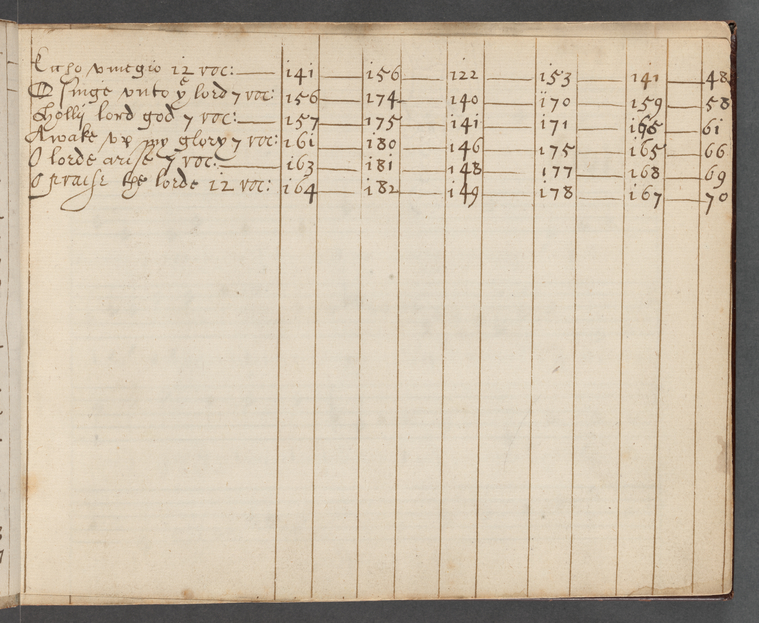 Ecco vinegio 12 voc: 141 156 122 153 141 48
O singe vnto ye lord 7 voc: 156 174 140 170 159 58
Holly lord god 7 voc: 157 175 141 171 61
Awake vp my glory 7 voc: 161 180 146 175 165 66
O lorde arise 7 voc: 163 181 148 177 168 69
O praise the lorde 12 voc: 164 182 149 178 167 70